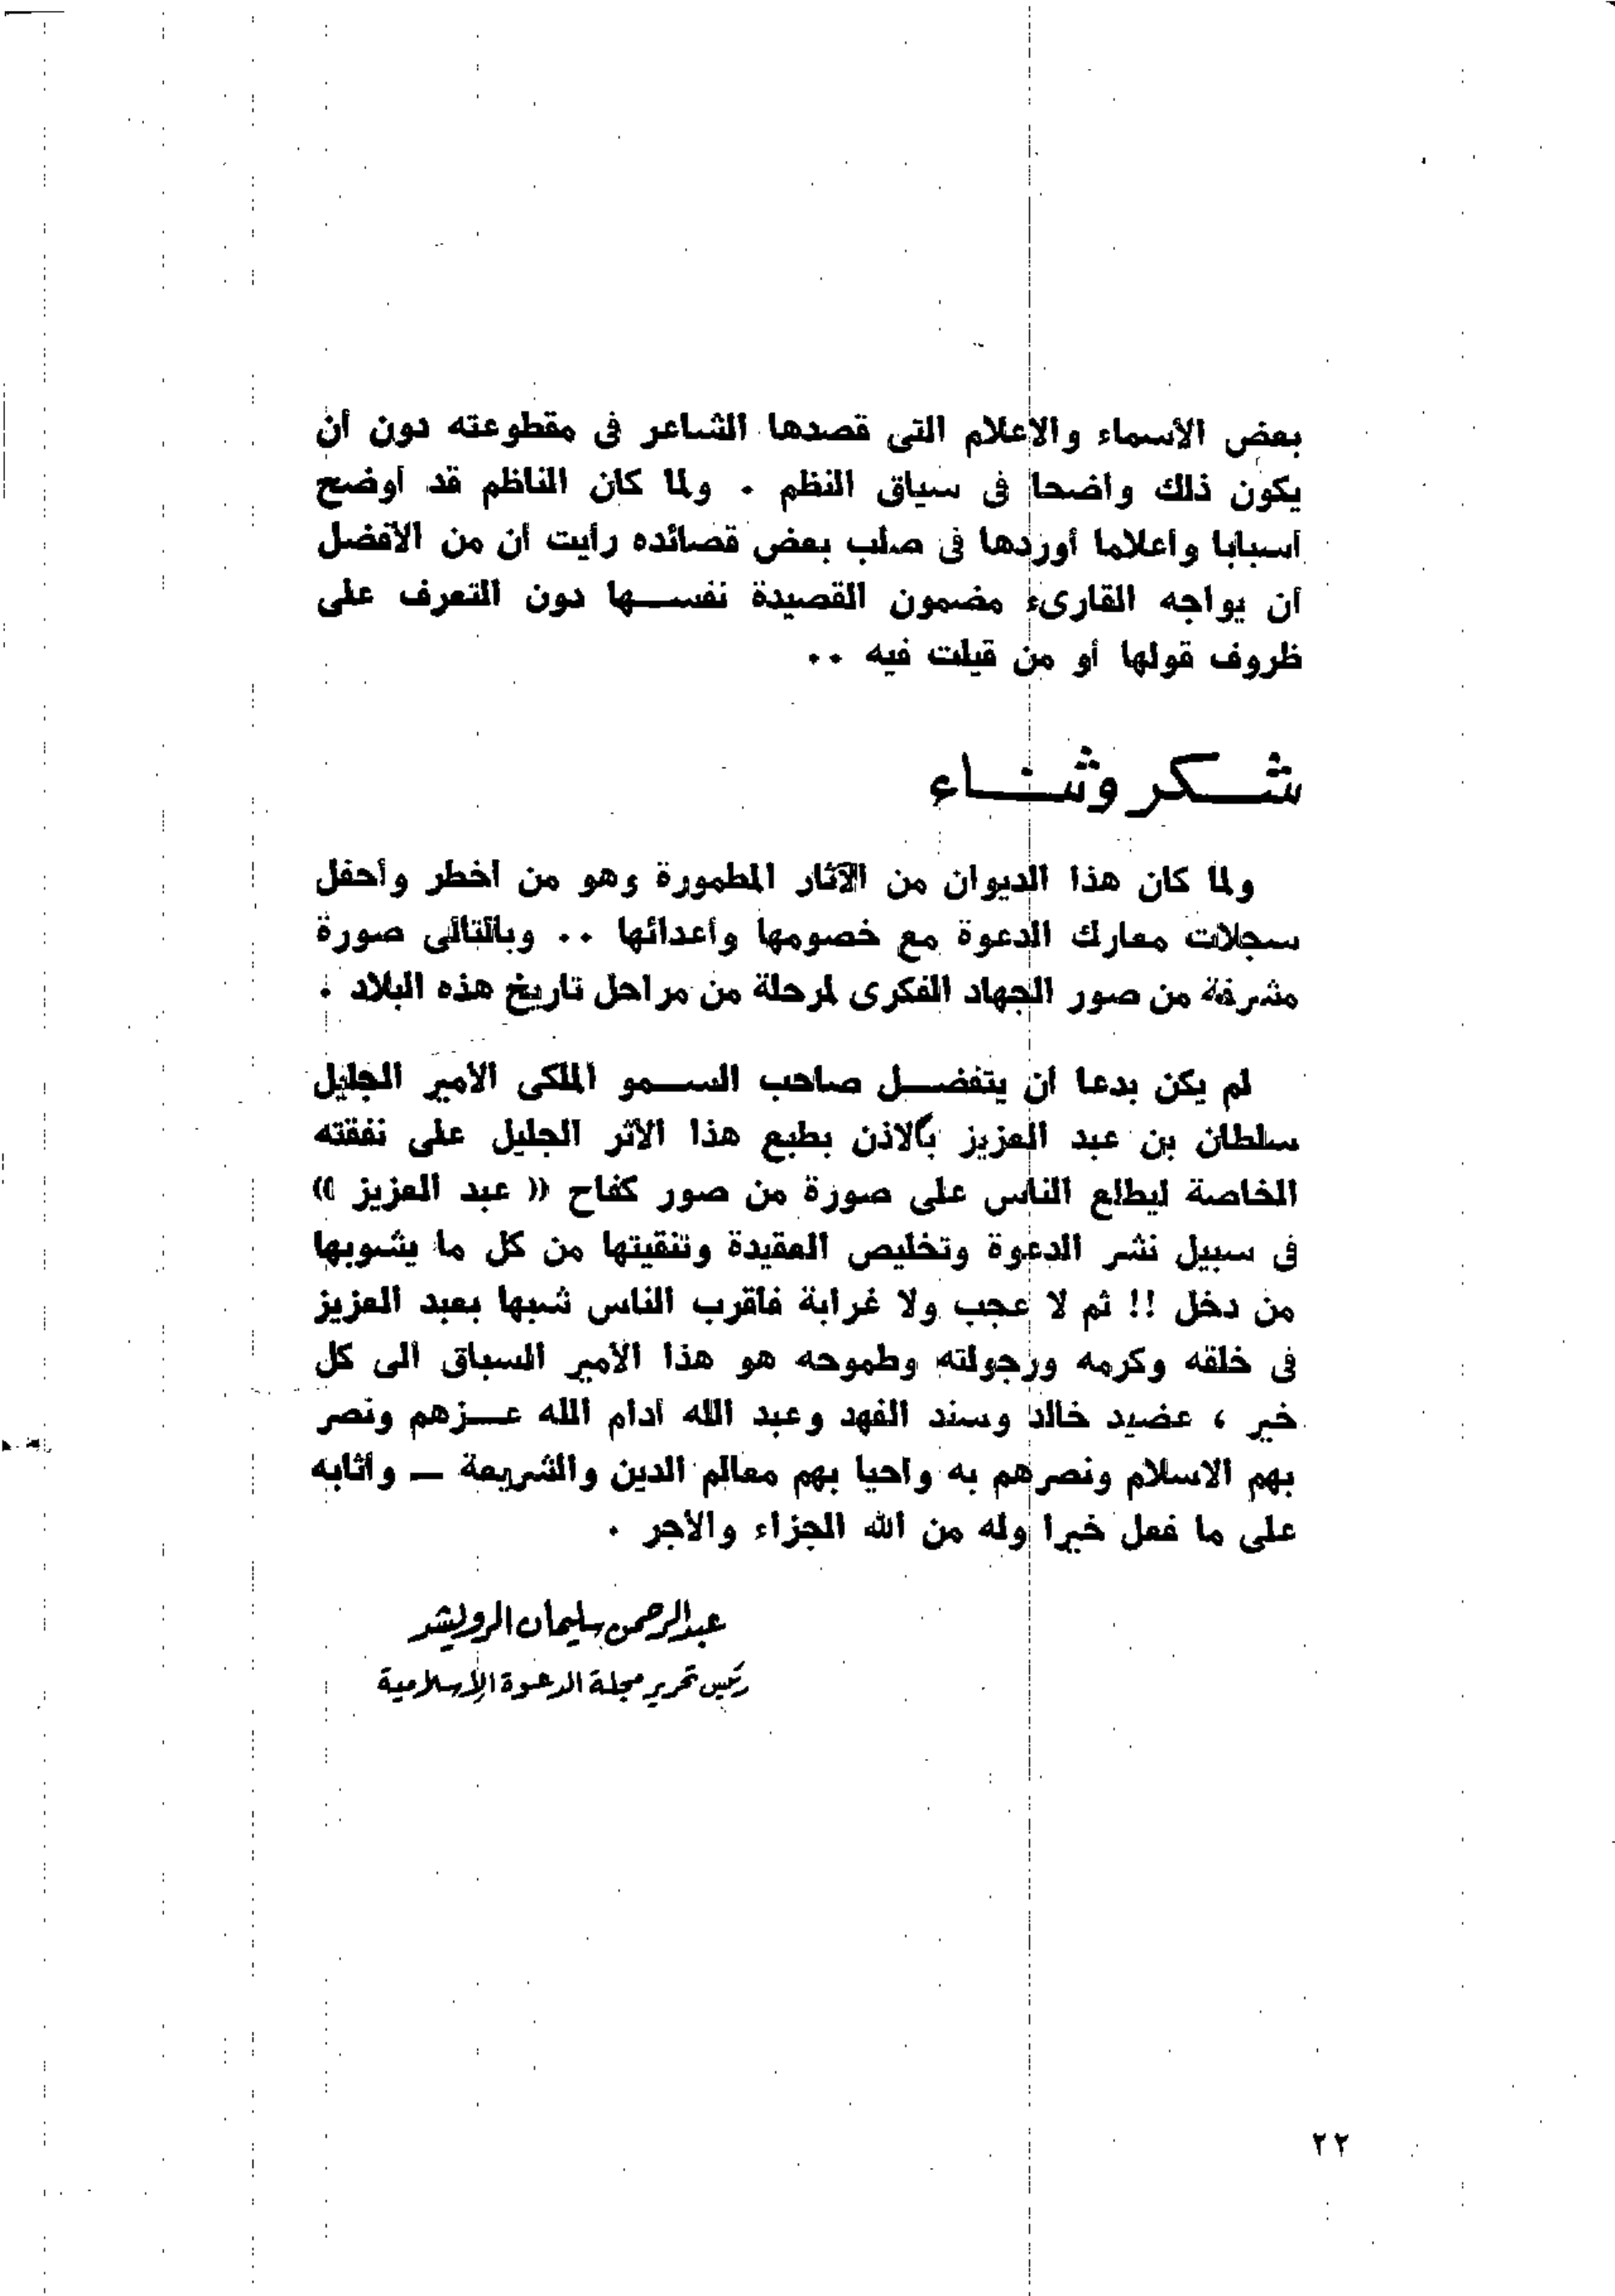 بعض الأسماء والاعلام التى قصدها الشاعر فى مقطوعته دون أن
يكون ذلك واضحا فى سياق النظم . ولما كان الناظم قد أوضح
أسبابا وأعلاما أوردها فى صلب بعض قصائده رأيت أن من الأفضل
أن يواجه القارىء مضمون القصيدة نفسـها دون التعرف على
ظروف قولها أو من قيلت فيه ..
شـكر وثنـاء
ولما كان هذا الديوان من الآثار المطمورة وهو من أخطر وأحفل
سجلات معارك الدعوة مع خصومها وأعدائها .. وبالتالى صورة
مشرفة من صور الجهاد الفكرى لمرحلة من مراحل تاريخ هذه البلاد .
لم يكن بدعا أن يتفضـل صاحب السـمو الملكى الأمير الجليل
سلطان بن عبد العزيز بالاذن بطبع هذا الأثر الجليل على نفقته
الخاصة ليطلع الناس على صورة من صور كفاح (( عبد العزيز ))
فى سبيل نشر الدعوة وتخليص العقيدة وتنقيتها من كل ما يشوبها
من دخل !! ثم لا عجب ولا غرابة فأقرب الناس شبها بعبد العزيز
فى خلقه وكرمه ورجولته وطموحه هو هذا الأمير السباق الى كل
خير ، عضيد خالد وسند الفهد وعبد الله أدام الله عـزهم ونصر
بهم الاسلام ونصرهم به وأحيا بهم معالم الدين والشريعة ــ وأثابه
على ما فعل خيرا وله من الله الجزاء والأجر .
عبدالرحمن سليمان الرويشد
رئيس تحرير مجلة الدعوة الإسلامية
٢٢